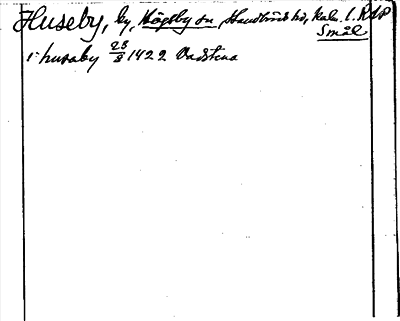 Huseby, by, Högsby sn, Handbörds hd, Kalm. l. RAP
Smål
i husaby 23/8 1422 Vadstena